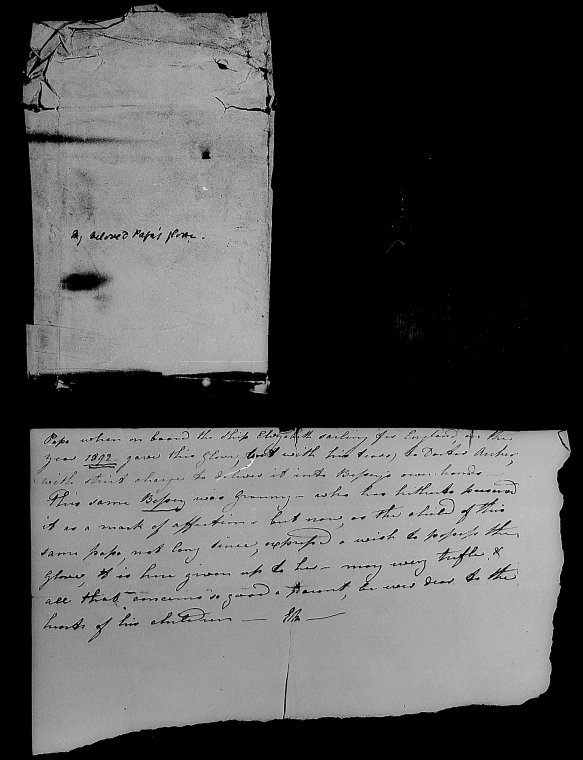 My beloved Papa's glove.
Papa when on board the Ship Elizabeth sailing for England, in the
year 1892 gave this Glove, wet with his tears, to Doctor Archer,
with strict charge to deliver it into Bessy's own hands
This same Bessy was Granny - who has hitherto preserved
it as a mark of affection - but now, as the child of this
same papa, not long since, expressed a wish to possess the
Glove, it is here given up to her - may every trifle, &
all that concerns so good a Parent, be ever dear to the
hearts of his children —